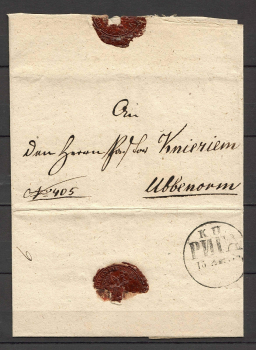 An
den Herrn Pastor Knieriem
No 405
Ubbenorm
К.П.
РИГА